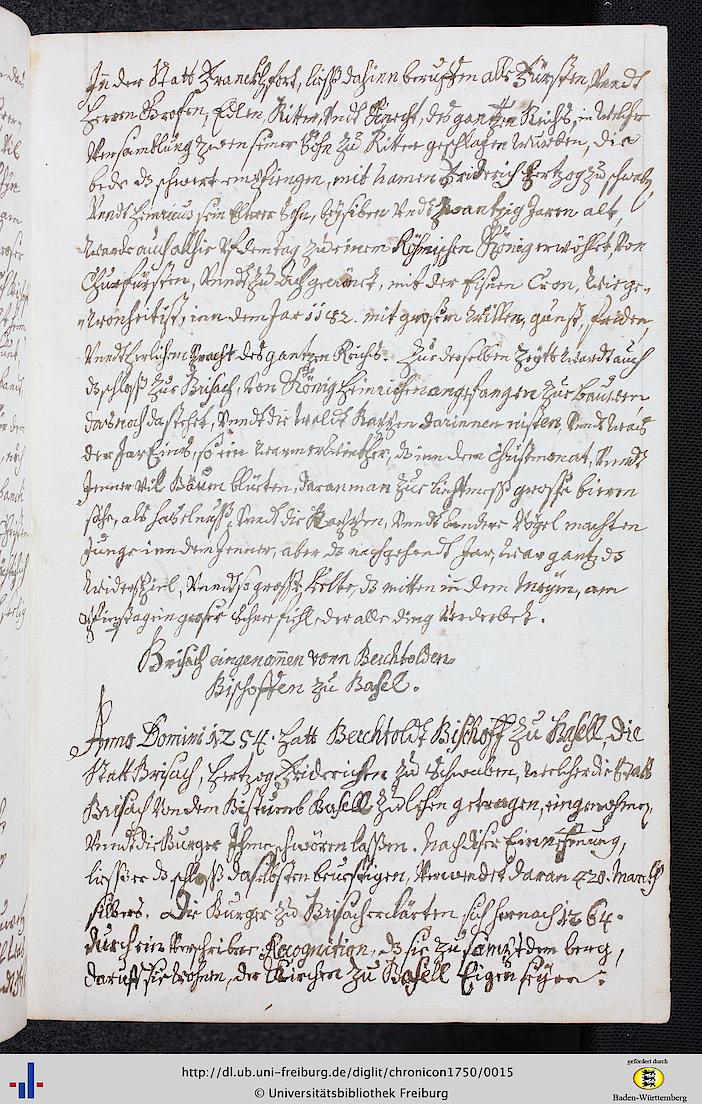 In der Statt Franckhfort, ließ dahinn beruffen alle Fürsten, Vnndt
Herrn Grofen, Edlen, Ritter, Vndt Knecht, des gantzen Reichs, in welcher
Versamblung zween seiner Söhn zu Ritter geschlagen wurden, die
bede dz schwert empfiengen, mit namen Friderich Hertzog zu schwaben,
Vnndt Heinricus sein Elterer Sohn, beÿ siben Vndt zwantzig Jaren alt,
wardt auch alhie vf den tag zu einem Röhmischen König erwöhlet, von
Churfürsten, Vnndt zu Ach gecrönet, mit der Eisnen Cron, wie ge-
wonheit ist, inn dem Jar 1182. mit grosem willen, gunst, friden,
Vnndt herlichem Pracht des gantzen Reichs. Zue derselben Zeÿtt wardt auch
dz schloß zue Brisach, von König Heinrichen angefangen zue bauwen,
das noch da stehet, Vnndt die waldt Rappen darinnen nisten, Vnndt was
der Jar Eins, so ein warmer Winther, dz inn dem Christmonat, Vnndt
Jenner vil Bäum blüeten, daran man zue liechtmeß grosse bieren
sahe, als haselnuß, Vnndt die Rappen, Vnndt andere Vögel machten
Junge inn dem Jenner, aber dz nachgehendt Jar, war gantz dz
widerspiel, Vnndt so grosse kelte, dz mitten in dem Meÿen, am
Pfingstag ein groser Schnee fiehl, der alle ding verderbet.
Brisach eingenomen vonn Berchtolden
Bischoffen zu Basel.
Anno Domini 1254. Hatt Berchtoldt Bischoff zu Basell, die
Statt Brisach, Hertzog Friderichen zu Schwaben, welcher die Statt
Brisach von dem Bistumb Basell zu lehen getragen, eingenohmen,
Vnndt die Burger Ihme schwören lassen. Nach diser Einnehmung,
ließ er dz schloß daselbsten beuestigen, Verwendet daran 420. March
silbers. Die Burger zu Brisach erclärten sich hernach 1264.
durch ein Verschribne Recognition, dz sie zusampt dem berg,
daruff sie wohnen, der Kirchen zu Basell Eigen seÿen:
http://dl.ub.uni-freiburg.de/diglit/chronicon1750/0015
© Universitätsbibliothek Freiburg
gefördert durch
Baden-Württemberg